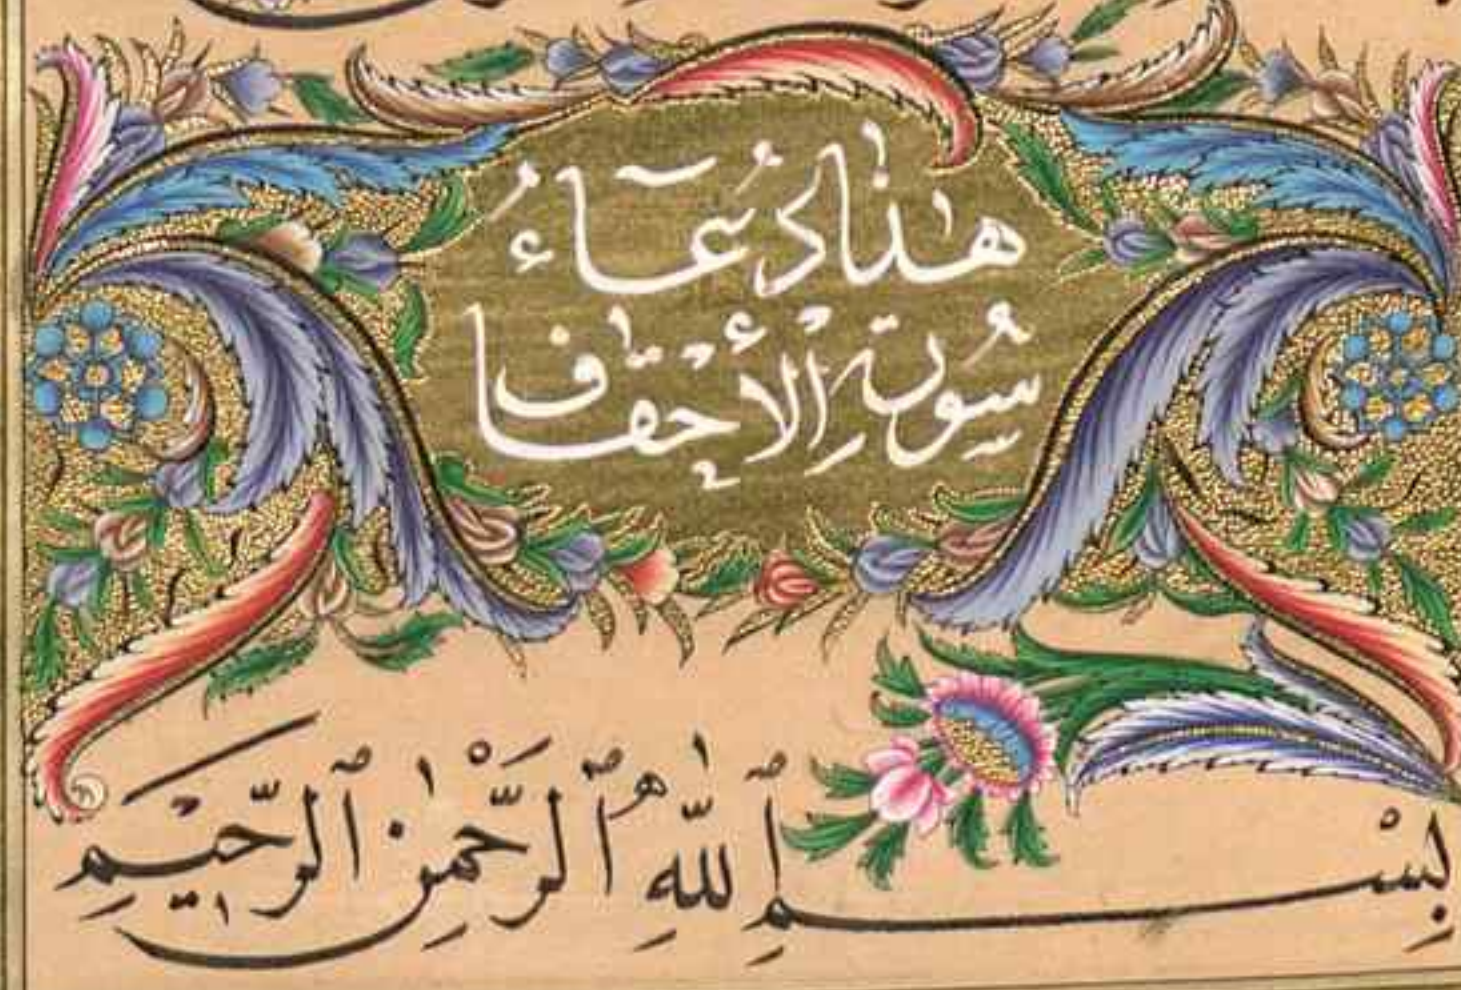 هٰذَا دُعَآءُ
سُورَةِ الْأَحْقَافِ
بِسْمِ ٱللّٰهِ ٱلرَّحْمٰنِ ٱلرَّحِيْمِ